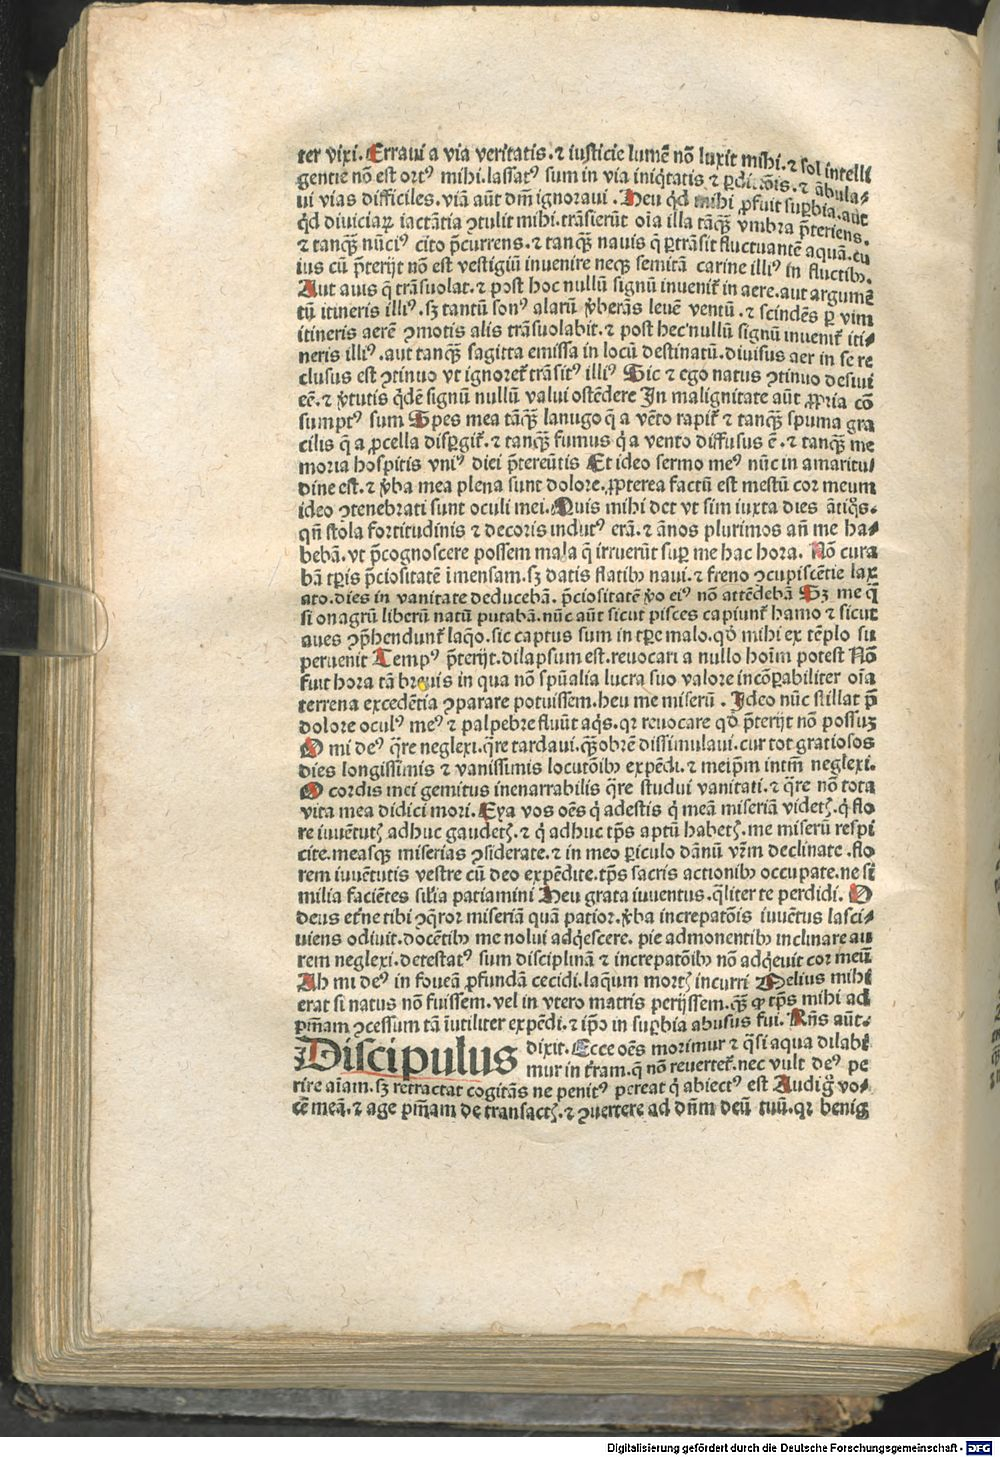 ter vixi. Erraui a via veritatis. ⁊ iusticie lumē nō luxit mihi. ⁊ sol intelli
gentie nō est ortꝰ mihi. lassatꝰ sum in via iniq̇tatis ⁊ ꝑdi..ōis. ⁊ ābula⸗
ui vias difficiles. viā aūt dn̄i ignoraui. Heu qd̓ mihi ꝓfuit suꝑbia. aut
qd̓ diuiciaꝝ iactātia ꝯtulit mihi. trāsierūt oīa illa tāqꝫ vmbra p̄teriens.
⁊ tanqꝫ nūciꝰ cito p̄currens. ⁊ tanqꝫ nauis q̄ ꝑtrāsit fluctuantē aquā. cu
ius cū p̄terijt nō est vestigiū inuenire neqꝫ semitā carine illiꝰ in fluctibꝫ.
Aut auis q̄ trāsuolat. ⁊ post hoc nullū signū inuenit᷑ in aere. aut argumē
tū itineris illiꝰ. sꝫ tantū sonꝰ alarū v̓berās leuē ventū. ⁊ scindēs ꝑ vim
itineris aerē ꝯmotis alis trāsuolabit. ⁊ post hec nullū signū inuenit᷑ iti⸗
neris illiꝰ. aut tanqꝫ sagitta emissa in locū destinatū. diuisus aer in se re
clusus est ꝯtinuo vt ignoret᷑ trāsitꝰ illiꝰ Sic ⁊ ego natus ꝯtinuo desiui
eē. ⁊ v̓tutis q̇dē signū nullū valui ostēdere In malignitate aūt ꝓpria cō
sumptꝰ sum Spes mea tāqꝫ lanugo q̄ a vēto rapit᷑ ⁊ tanqꝫ spuma gra
cilis q̄ a ꝓcella disꝑgit᷑. ⁊ tanqꝫ fumus q̇ a vento diffusus ē. ⁊ tanqꝫ me
moria hospitis vniꝰ diei p̄tereūtis Et ideo sermo meꝰ nūc in amaritu⸗
dine est. ⁊ v̓ba mea plena sunt dolore. ꝓpterea factū est mestū cor meum
ideo ꝯtenebrati sunt oculi mei. Quis mihi det vt sim iuxta dies ātiq̇s.
qn̄ stola fortitudinis ⁊ decoris indutꝰ erā. ⁊ ānos plurimos an̄ me ha⸗
bebā. vt p̄cognoscere possem mala q̄ irruerūt suꝑ me hac hora. Nō cura
bā tꝑis p̄ciositatē īmensam. sꝫ datis flatibꝫ naui. ⁊ freno ꝯcupiscētie lax
ato. dies in vanitate deducebā. p̄ciositatē v̓o eiꝰ nō attēdebā Sꝫ me q̄
si onagrū liberū natū putabā. nūc aūt sicut pisces capiunt᷑ hamo ⁊ sicut
aues ꝯp̄hendunt᷑ laq̇o. sic captus sum in tꝑe malo. qd̓ mihi ex tēplo su
peruenit Tempꝰ p̄terijt. dilapsum est. reuocari a nullo hoīm potest Nō
fuit hora tā breuis in qua nō spūalia lucra suo valore incōꝑabiliter oīa
terrena excedētia ꝯparare potuissem. heu me miserū. Ideo nūc stillat p̄
dolore oculꝰ meꝰ ⁊ palpebre fluūt aq̇s. qꝛ reuocare qd̓ p̄terijt nō possuꝫ
O mi deꝰ q̄re neglexi. q̄re tardaui. qꝫobrē dissimulaui. cur tot gratiosos
dies longissimis ⁊ vanissimis locutōibꝫ expēdi. ⁊ meip̄m intm̄ neglexi.
O cordis mei gemitus inenarrabilis q̄re studui vanitati. ⁊ q̄re nō tota
vita mea didici mori. Eya vos oēs q̇ adestis q̇ meā miseriā videtꝭ. q̇ flo
re iuuētutꝭ adhuc gaudetꝭ. ⁊ q̇ adhuc tp̄s aptū habetꝭ. me miserū respi
cite. measqꝫ miserias ꝯsiderate. ⁊ in meo ꝑiculo dānū vr̄m declinate. flo
rem iuuētutis vestre cū deo expēdite. tp̄s sacris actionibꝫ occupate. ne si
milia faciētes sil̓ia patiamini Heu grata iuuentus. q̄liter te perdidi. O
deus et̓ne tibi ꝯq̇ror miseriā quā patior. v̓ba increpatōis iuuētus lasci⸗
uiens odiuit. docētibꝫ me nolui adq̇escere. pie admonentibꝫ inclinare au
rem neglexi. detestatꝰ sum disciplinā ⁊ increpatōibꝫ nō adq̇euit cor meū
Ah mi deꝰ in foueā ꝓfundā cecidi. laq̇um mortꝭ incurri Melius mihi
erat si natus nō fuissem. vel in vtero matris perijssem. qꝫ ꝙ tp̄s mihi ad
pn̄iam ꝯcessum tā īutiliter expēdi. ⁊ ip̄o in suꝑbia abusus fui. Rn̄s aūt.
Discipulus dixit. Ecce oēs morimur ⁊ q̄si aqua dilabi
mur in t̓ram. q̄ nō reuertet᷑. nec vult deꝰ pe
rire aīam. sꝫ retractat cogitās ne penitꝰ pereat q̇ abiectꝰ est Audi g̊ vo⸗
cē meā. ⁊ age pn̄iam de transactꝭ. ⁊ ꝯuertere ad dn̄m deū tuū. qꝛ benig
Digitalisierung gefördert durch die Deutsche Forschungsgemeinschaft - DFG